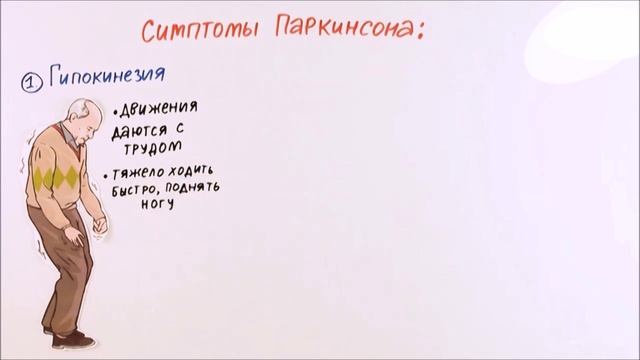 Симптомы Паркинсона:
1 Гипокинезия
• Движения
даются с
трудом
• Тяжело ходить
быстро, поднять
ногу